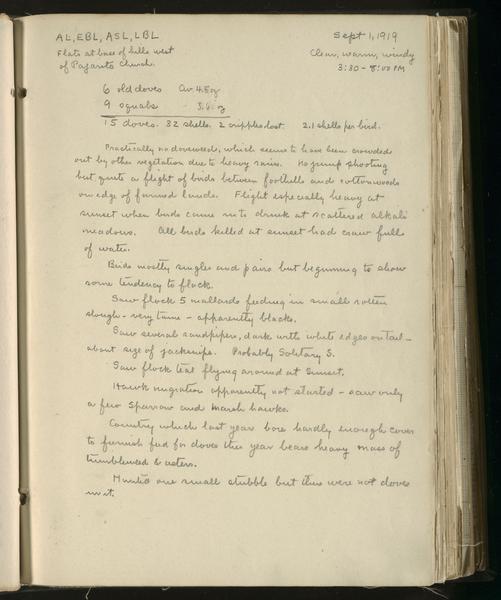 AL, EBL, ASL, LBL
Sept 1, 1919
Flats at base of hills west
of Pajarito Church.
Clear, warm, windy
3:30 - 8:00 PM
6 old doves Av. 4.5 oz
9 squabs 3.6 oz
15 doves. 32 shells. 2 cripples lost. 2.1 shells per bird.
Practically no doveweed, which seems to have been crowded
out by other vegetation due to heavy rains. No jump shooting
but quite a flight of birds between foothills and cottonwoods
on edge of farmed lands. Flight especially heavy at
sunset when birds came in to drink at scattered alkali
meadows. All birds killed at sunset had craw fulls
of water.
Birds mostly singles and pairs but beginning to show
some tendency to flock.
Saw flock 5 mallards feeding in small rotten
slough - very tame - apparently blacks.
Saw several sandpipers, dark with white edges on tail -
about size of jacksnipe. Probably Solitary S.
Saw flock teal flying around at Sunset.
Hawk migration apparently not started - saw only
a few Sparrow and Marsh hawks.
Country which last year bore hardly enough cover
to furnish feed for doves this year bears heavy mass of
tumbleweed & asters.
Hunted one small stubble but there were not doves
in it.